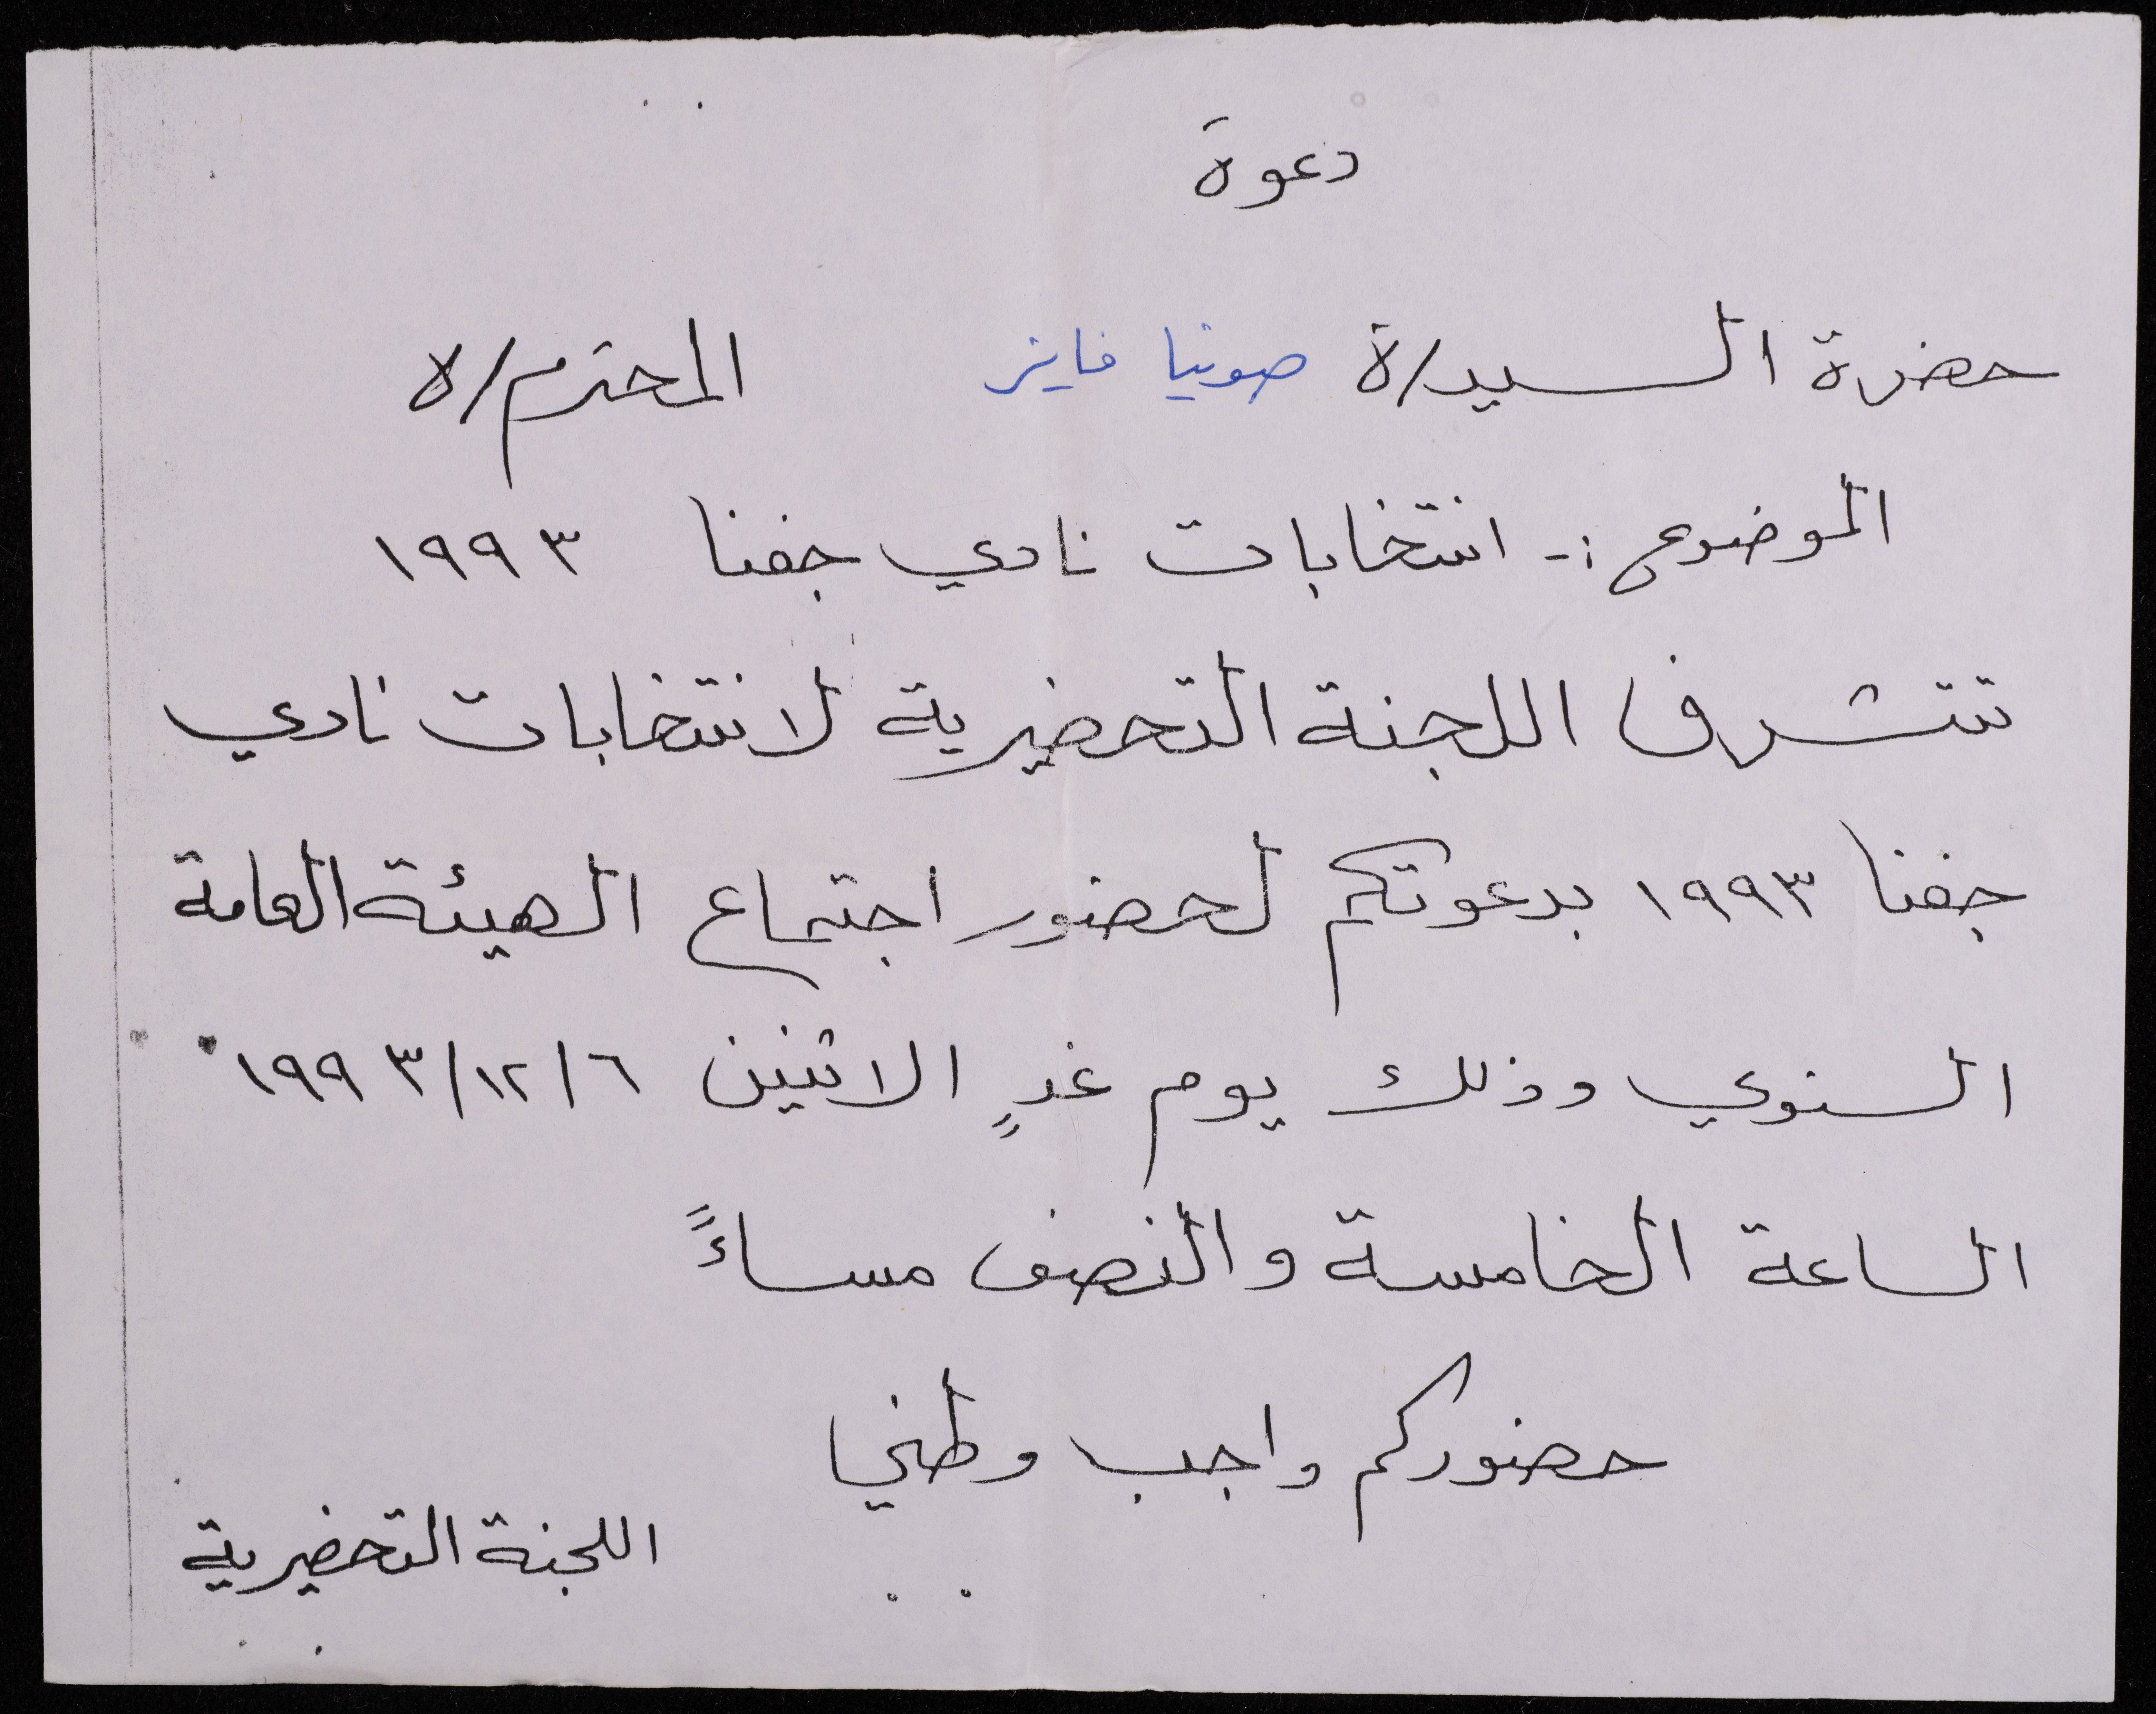 دعوة
حضرة السيد/ة صونيا فايز المحترم/ه
الموضوع :- انتخابات نادي جفنا ١٩٩٣
تتشرف اللجنة التحضيرية لانتخابات نادي
جفنا ١٩٩٣ بدعوتكم لحضور اجتماع الهيئة العامة
السنوي وذلك يوم غدٍ الاثنين ٦/١٢/١٩٩٣
الساعة الخامسة والنصف مساءً
حضوركم واجب وطني
اللجنة التحضيرية